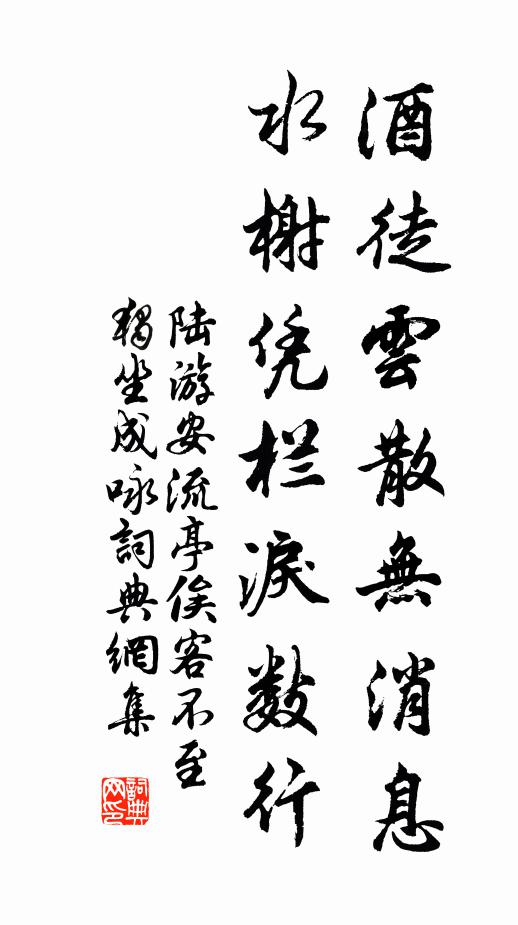 酒徒雲散無消息
水榭凭栏淚数行
陆游安流亭俟客不至
獨坐成咏詞典網集
詞典
网印